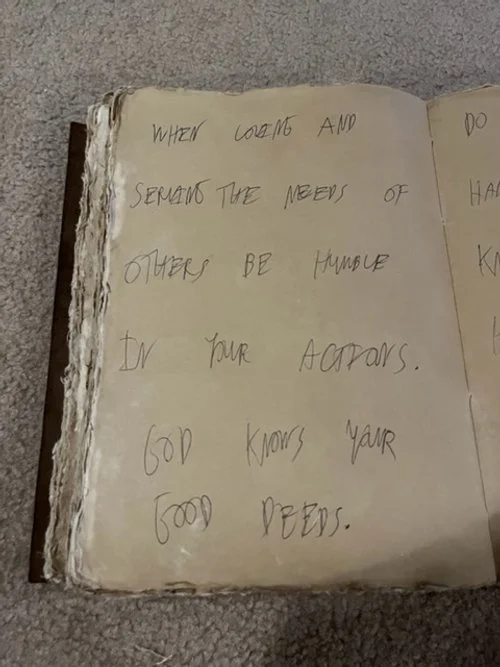 WHEN LOVING AND
SERVING THE NEEDS OF
OTHERS BE HUMBLE
IN YOUR ACTIONS.
GOD KNOWS YOUR
GOOD DEEDS.
DO
HA
KN
H